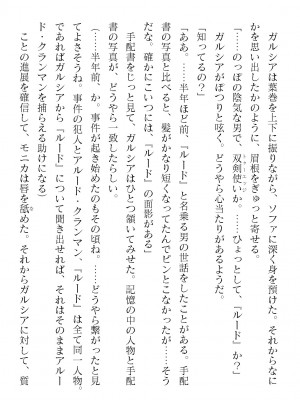 ガルシアは葉巻を上下に振りながら、ソファに深く身を預けた。それからなに
かを思い出したかのように、眉根をぎゅっと寄せる。
「……のっぽの陰気な男で、双剣使いか。……ひょっとして、「ルード」か?」
ガルシアがぽつりと呟く。どうやら心当たりがあるようだ。
「知ってるの?」
「ああ。……半年ほど前、「ルード」と名乗る男の世話をしたことがある。手配
書の写真と比べると、髪がかなり短くなってたんでピンとこなかったが……そう
だな。確かにこいつには、「ルード」の面影がある」
手配書をじっと見て、ガルシアはひとつ頷いてみせる。記憶の中の人物と手配
書の写真が、どうやら一致したらしい。
(……半年前、か。事件が起き始めたのもその頃ね。……どうやら繋がったと見
てよさそうね。事件の犯人とアルード・クランマン、「ルード」は全て同一人物。
であればガルシアから「ルード」について聞き出せれば、それはそのままアルー
ド・クランマンを捕らえる助けになる)
ことの進展を確信して、モニカは唇を舐めた。それからガルシアに対して、質